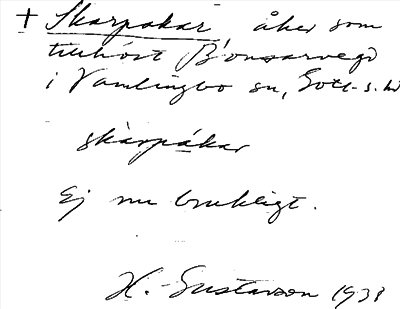 + Skarpåkar, åker som
tillhört Bonsarvegd
i Vamlingbo sn, Gotl. s. hd
skàrpákar
Ej nu brukligt.
H. Gustavson 1938